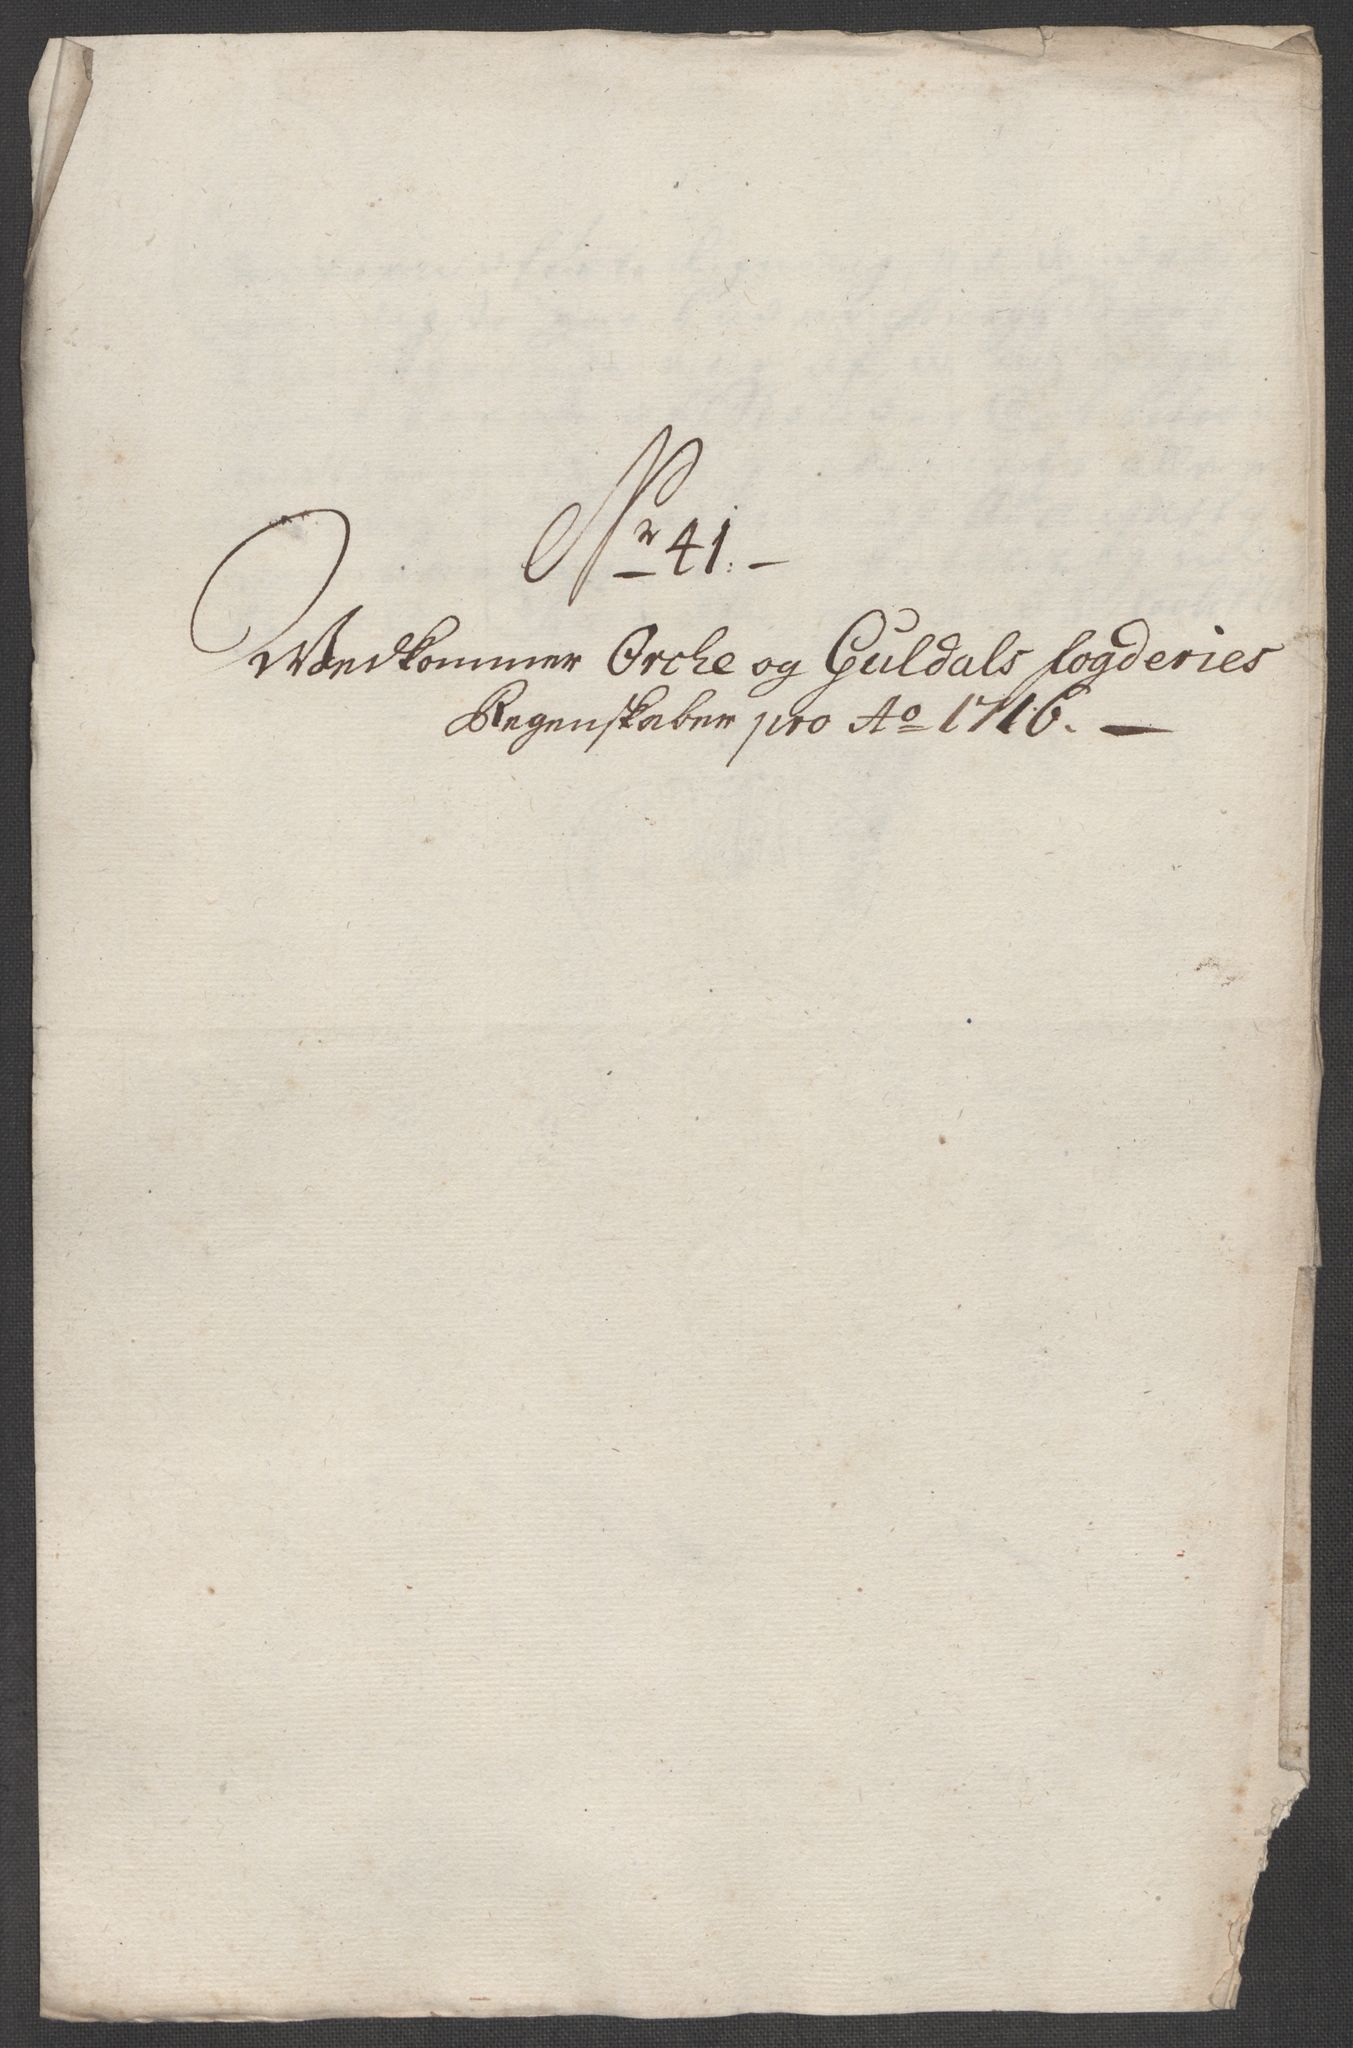 Nr 41. –
Wedkommer Orche og Guldals fogderies
Regenskaber pro Ao 1716. –